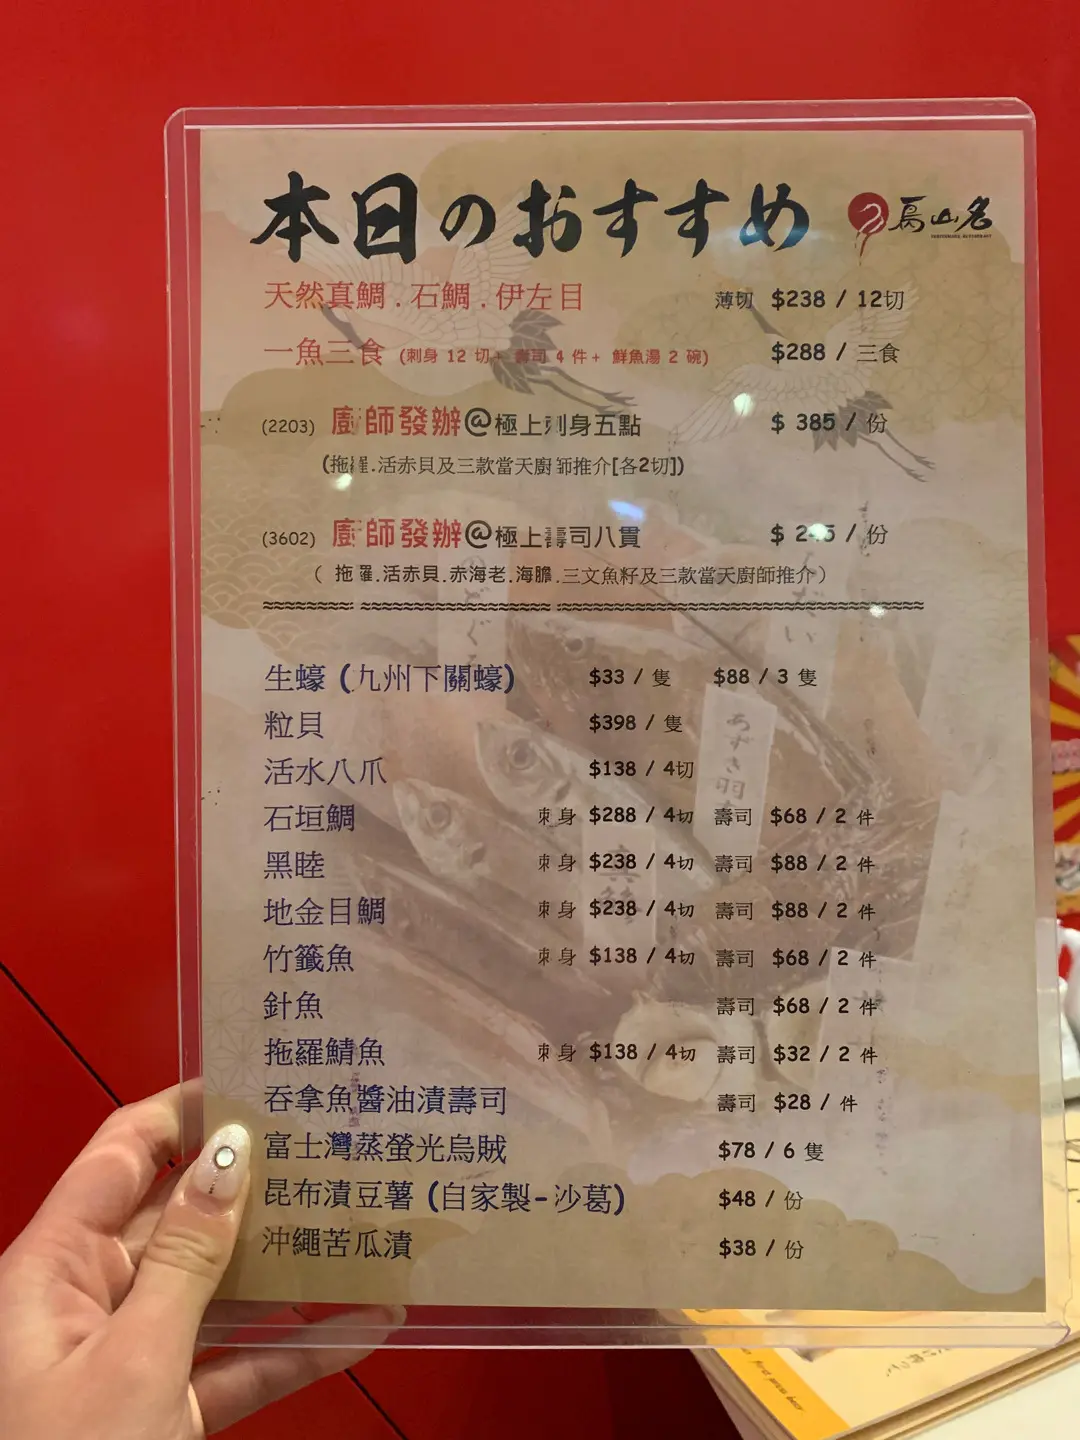 本日のおすすめ
天然真鯛 . 石鯛 . 伊左目 薄切 $238 / 12切
一魚三食 (刺身 12 切+ 壽司 4 件+ 鮮魚湯 2 碗) $288 / 三食
(2203) 廚師發辦@極上刺身五點 $ 385 / 份
(拖羅.活赤貝及三款當天廚師推介[各2切])
(3602) 廚師發辦@極上壽司八貫 / 份
( 拖羅.活赤貝.赤海老.海膽.三文魚籽及三款當天廚師推介)
生蠔 (九州下關蠔) $33 / 隻 $88 / 3 隻
粒貝 $398 / 隻
活水八爪 $138 / 4切
石垣鯛 刺身 $288 / 4切 壽司 $68 / 2 件
黑睦 刺身 $238 / 4切 壽司 $88 / 2 件
地金目鯛 刺身 $238 / 4切 壽司 $88 / 2 件
竹籤魚 刺身 $138 / 4切 壽司 $68 / 2 件
針魚 壽司 $68 / 2 件
拖羅鯖魚 刺身 $138 / 4切 壽司 $32 / 2 件
吞拿魚醬油漬壽司 壽司 $28 / 件
富士灣蒸螢光烏賊 $78 / 6 隻
昆布漬豆薯 (自家製-沙葛) $48 / 份
沖繩苦瓜漬 $38 / 份